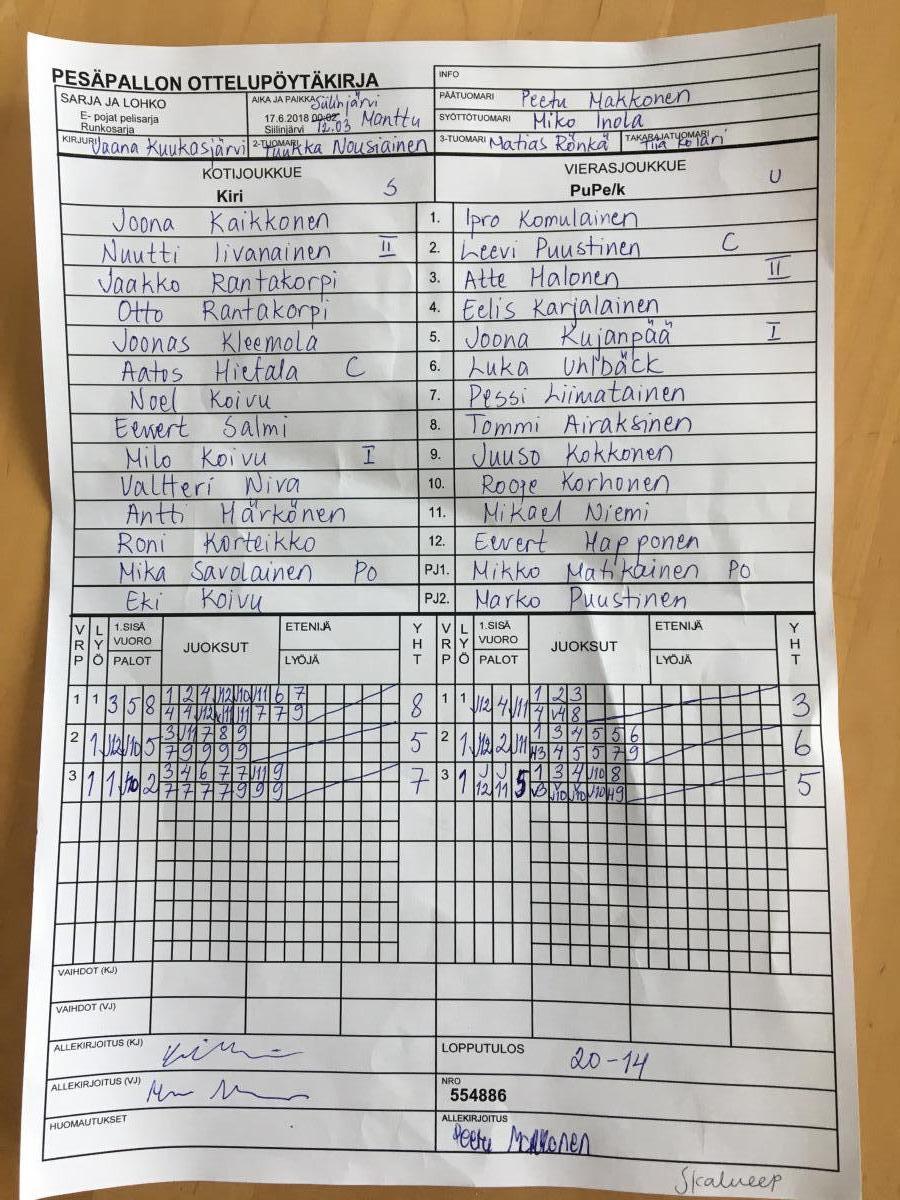 PESÄPALLON OTTELUPÖYTÄKIRJA
INFO
SARJA JA LOHKO
E- pojat pelisarja
Runkosarja
AIKA JA PAIKKA Siilinjärvi
17.6.2018 00:02 Manttu
Siilinjärvi 12.03
PÄÄTUOMARI Peetu Makkonen
SYÖTTÖTUOMARI Miko Inola
KIRJURI Jaana Kuukasjärvi
2-TUOMARI Tuukka Nousiainen
3-TUOMARI Matias Rönkä
TAKARAJATUOMARI Tiia Kolari
KOTIJOUKKUE S
Kiri
VIERASJOUKKUE U
PuPe/k
Joona Kaikkonen 1. Ipro Komulainen
Nuutti Iivanainen II 2. Leevi Puustinen C
Jaakko Rantakorpi 3. Atte Halonen II
Otto Rantakorpi 4. Eelis Karjalainen
Joonas Kleemola 5. Joona Kujanpää I
Aatos Hietala C 6. Luka Uhlbäck
Noel Koivu 7. Pessi Liimatainen
Eevert Salmi 8. Tommi Airaksinen
Milo Koivu I 9. Juuso Kokkonen
Valtteri Niva 10. Rooge Korhonen
Antti Härkönen 11. Mikael Niemi
Roni Korteikko 12. Eevert Happonen
Mika Savolainen PO PJ1. Mikko Matikainen PO
Eki Koivu PJ2. Marko Puustinen
VRP LYÖ 1.SISÄ VUORO PALOT JUOKSUT ETENIJÄ LYÖJÄ YHT VRP LYÖ 1.SISÄ VUORO PALOT JUOKSUT ETENIJÄ LYÖJÄ YHT
1 1 3 5 8 1 2 4 J12 J10 J11 6 7 8 1 1 J12 4 J11 1 2 3 3
4 4 J12 J11 J11 7 7 9 4 J4 8
2 1 J12 J10 5 3 J11 7 8 9 5 2 1 J12 2 J11 1 3 4 5 5 6 6
7 9 9 9 9 H3 4 5 5 7 9
3 1 1 J10 2 3 4 6 7 7 J11 9 7 3 1 J12 J11 5 1 3 4 J10 8 5
7 7 7 7 9 9 9 J3 J10 J10 J10 H9
VAIHDOT (KJ)
VAIHDOT (VJ)
ALLEKIRJOITUS (KJ)
LOPPUTULOS 20-14
ALLEKIRJOITUS (VJ)
NRO
554886
HUOMAUTUKSET
ALLEKIRJOITUS
Peetu Makkonen